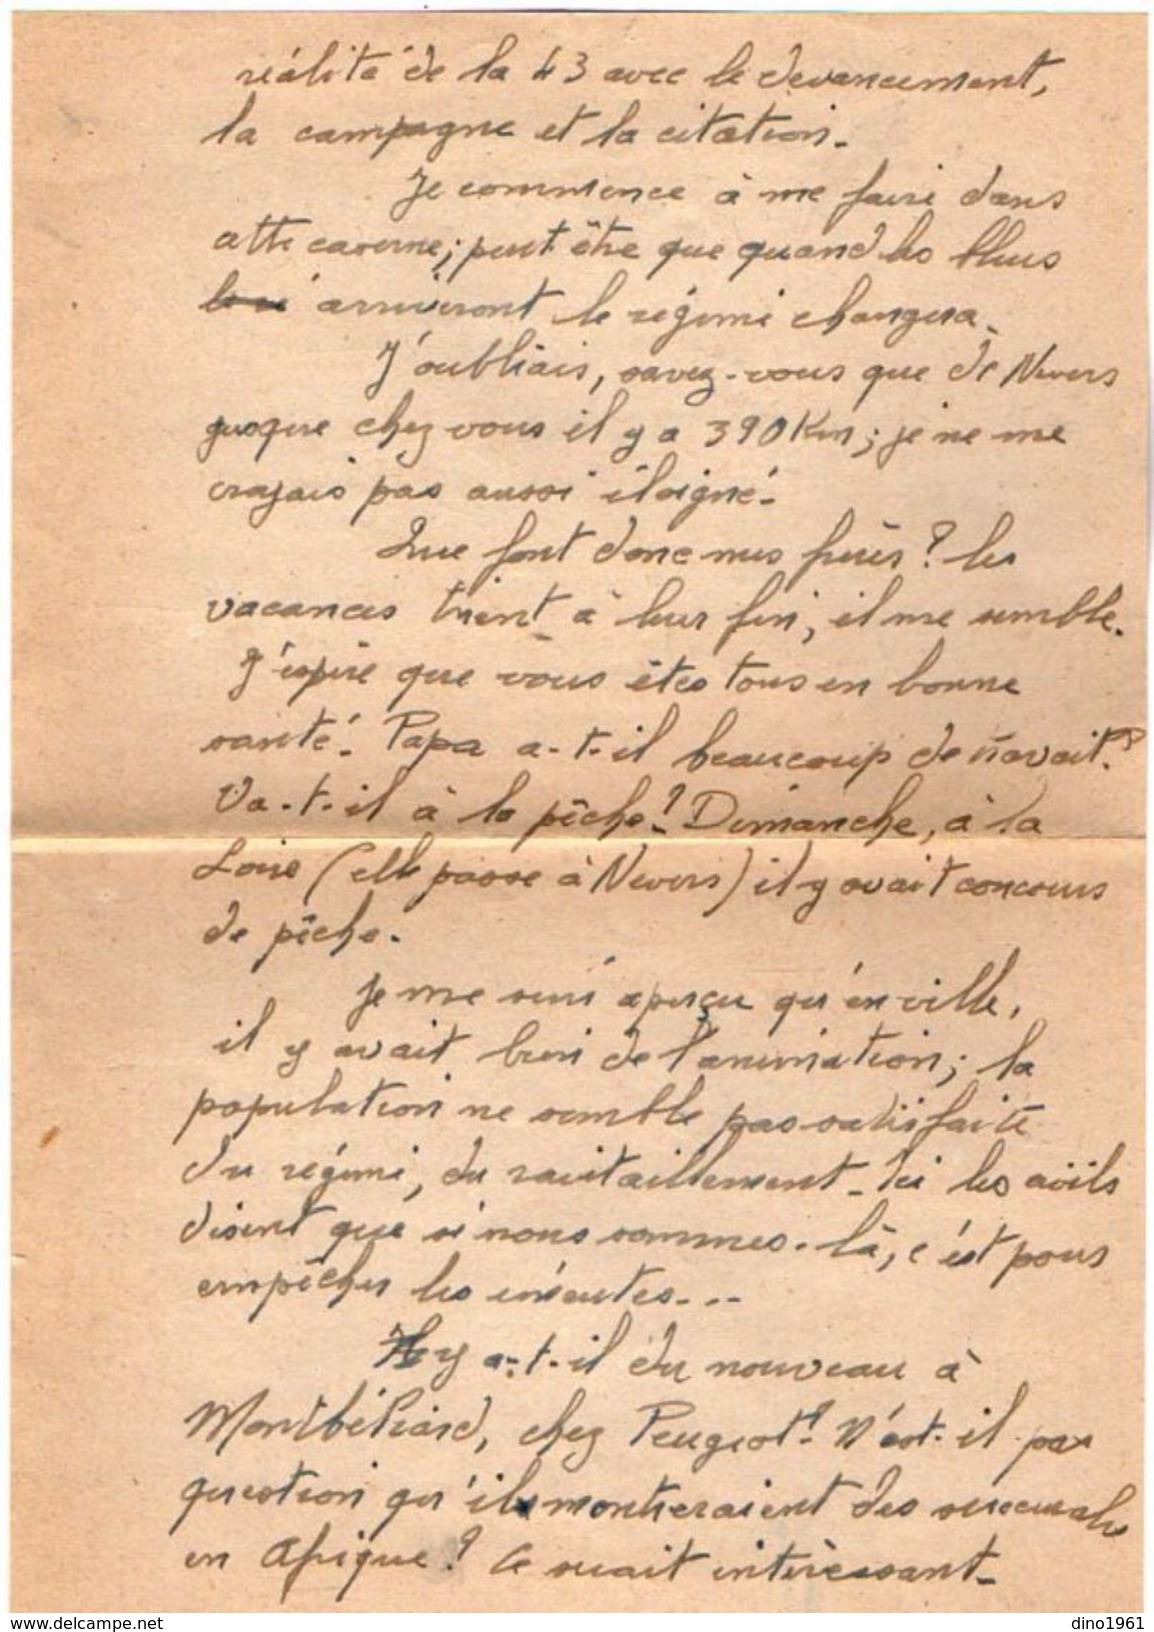 réalité de la 43 avec le devancement,
la campagne et la citation.
Je commence à me faire dans
cette caserne; peut être que quand les bleus
arriveront le régime changera.
J'oubliais, savez-vous que de Nevers
jusque chez vous il y a 390 Km; je ne me
croyais pas aussi éloigné.
Que font donc mes frères? les
vacances tirent à leur fin, il me semble.
J'espère que vous êtes tous en bonne
santé. Papa a-t-il beaucoup de travail?
Va-t-il à la pêche? Dimanche, à la
Loire (elle passe à Nevers) il y avait concours
de pêche.
Je me suis aperçu qu'en ville,
il y avait bien de l'animation; la
population ne semble pas satisfaite
du régime, du ravitaillement. Ici les civils
disent que si nous sommes là, c'est pour
empêcher les émeutes...
Y a-t-il du nouveau à
Montbéliard, chez Peugeot? N'est-il pas
question qu'ils monteraient des succursales
en Afrique? Ce serait intéressant.
delcampe.net
dino1961